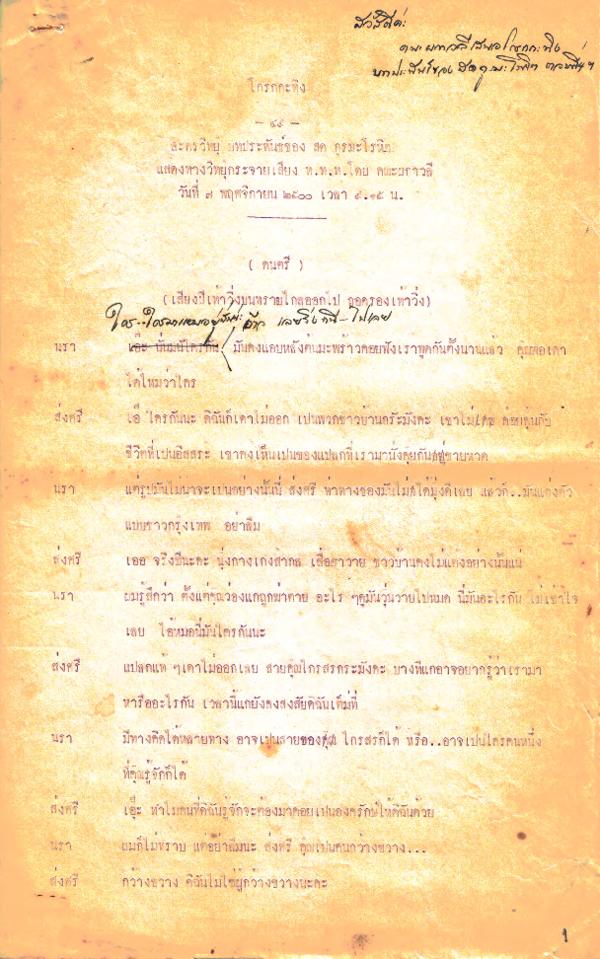 สวัสดีค่ะ
คณะแก้วฟ้าเสนอโกรกกะทิง
บทประพันธ์ของ สด กูรมะโรหิต ตอนที่
โกรกกะทิง
- ๔๙ -
ละครวิทยุ บทประพันธ์ของ สด กูรมะโรหิต
แสดงทางวิทยุกระจายเสียง ท.ท.ท.โดย คณะ
วันที่ ๗ พฤศจิกายน ๒๕๐๐ เวลา ๙.๑๕ น.
( ดนตรี )
(เสียงฝีเท้าวิ่งบนทรายไกลออกไป ถอดรองเท้าวิ่ง)
ใคร..ใครมาแอบอยู่นั่นน่ะ อ้าว เลยวิ่งหนี-ไปเลย
นรา เอ๊ะ นั่นมันใครกัน มันคงแอบหลังต้นมะพร้าวคอยฟังเราพูดกันตั้งนานแล้ว คุณพอเดา
ได้ไหมว่าใคร
ส่งศรี เอ๊ ใครกันนะ ดิฉันก็เดาไม่ออก เป็นพวกชาวบ้านกระมังคะ เขาไม่เคย ค่อยคุ้นกับ
ชีวิตที่เป็นอิสสระ เขาคงเห็นเป็นของแปลกที่เรามานั่งคุยกันอยู่ชายหาด
นรา แต่รูปมันไม่น่าจะเป็นอย่างนั้นนี่ ส่งศรี ท่าทางของมันไม่ได้มุ่งดีเลย แล้วก็..มันแต่งตัว
แบบชาวกรุงเทพ อย่าลืม
ส่งศรี เออ จริงซีนะคะ นุ่งกางเกงสากล เสื้อฮาวาย ชาวบ้านคงไม่แต่งอย่างนั้นแน่
นรา ผมรู้สึกว่า ตั้งแต่คุณว่องแกถูกฆ่าตาย อะไร ๆดูมันวุ่นวายไปหมด นี่มันอะไรกัน ไม่เข้าใจ
เลย ไอ้หมอนี่มันใครกันนะ
ส่งศรี แปลกแท้ ๆเดาไม่ออกเลย สายคุณไกรสรกระมังคะ บางทีแกอาจอยากรู้ว่าเรามา
หารืออะไรกัน เวลานี้แกยังคงสงสัยดิฉันเต็มที่
นรา มีทางคิดได้หลายทาง อาจเป็นสายของคุณ ไกรสรก็ได้ หรือ..อาจเป็นใครคนหนึ่ง
ที่คุณรู้จักก็ได้
ส่งศรี เอ๊ะ ทำไมคนที่ดิฉันรู้จักจะต้องมาคอยเป็นองครักษ์ให้ดิฉันด้วย
นรา ผมก็ไม่ทราบ แต่อย่าลืมนะ ส่งศรี คุณเป็นคนกว้างขวาง...
ส่งศรี กว้างขวาง ดิฉันไม่ใช่ผู้กว้างขวางนะคะ
1